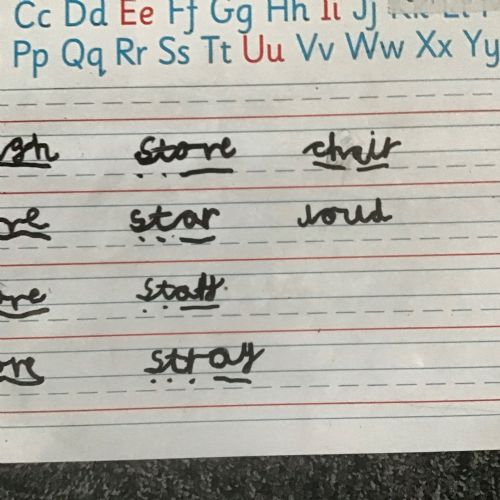 Cc Dd Ee Ff Gg Hh Ii Jj
Pp Qq Rr Ss Tt Uu Vv Ww Xx Yy
store chair
star loud
staff
stray